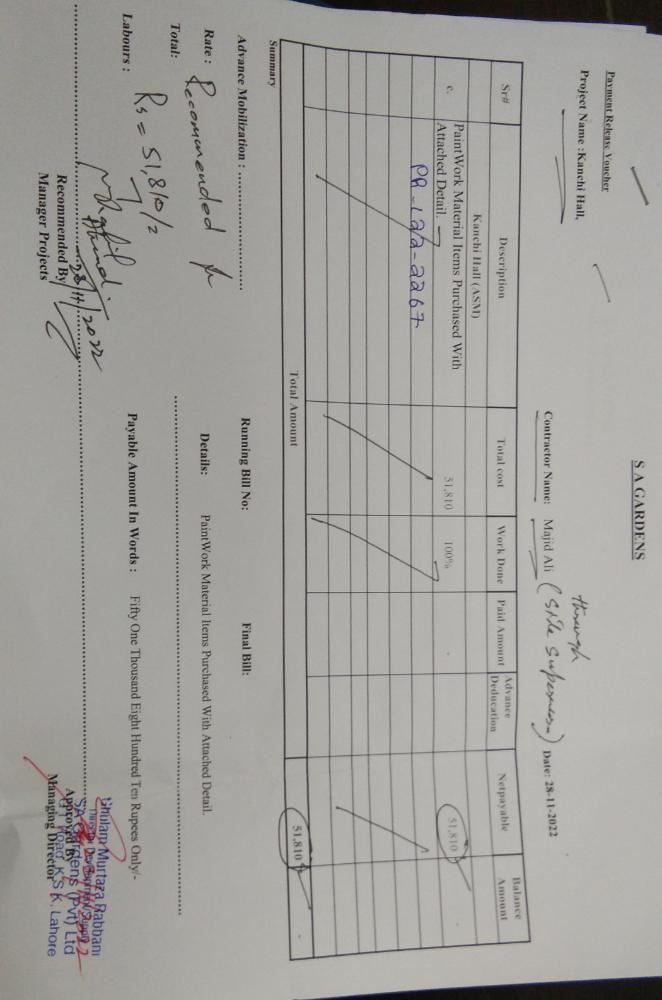 S A GARDENS
Payment Release Voucher
through
Project Name :Kanchi Hall,
Contractor Name: Majid Ali (Site Supervisor) Date: 28-11-2022
Sr# Description Total cost Work Done Paid Amount Advance Deducation Netpayable Balance Amount
Kanchi Hall (ASM)
c. PaintWork Material Items Purchased With Attached Detail. 51,810 100% - 51,810
PR-122-2267
Total Amount 51,810 -
Summary
Advance Mobilization : Running Bill No: Final Bill:
Rate : Recommended Details: PaintWork Material Items Purchased With Attached Detail.
Total:
Rs = 51,810/=
Labours : Payable Amount In Words : Fifty One Thousand Eight Hundred Ten Rupees Only/-
28/11/2022
Recommended By
Manager Projects
Ghulam Murtaza Rabbani
SA Gardens (Pvt) Ltd
Approved By
Managing Director
G.T Road, K.S.K. Lahore